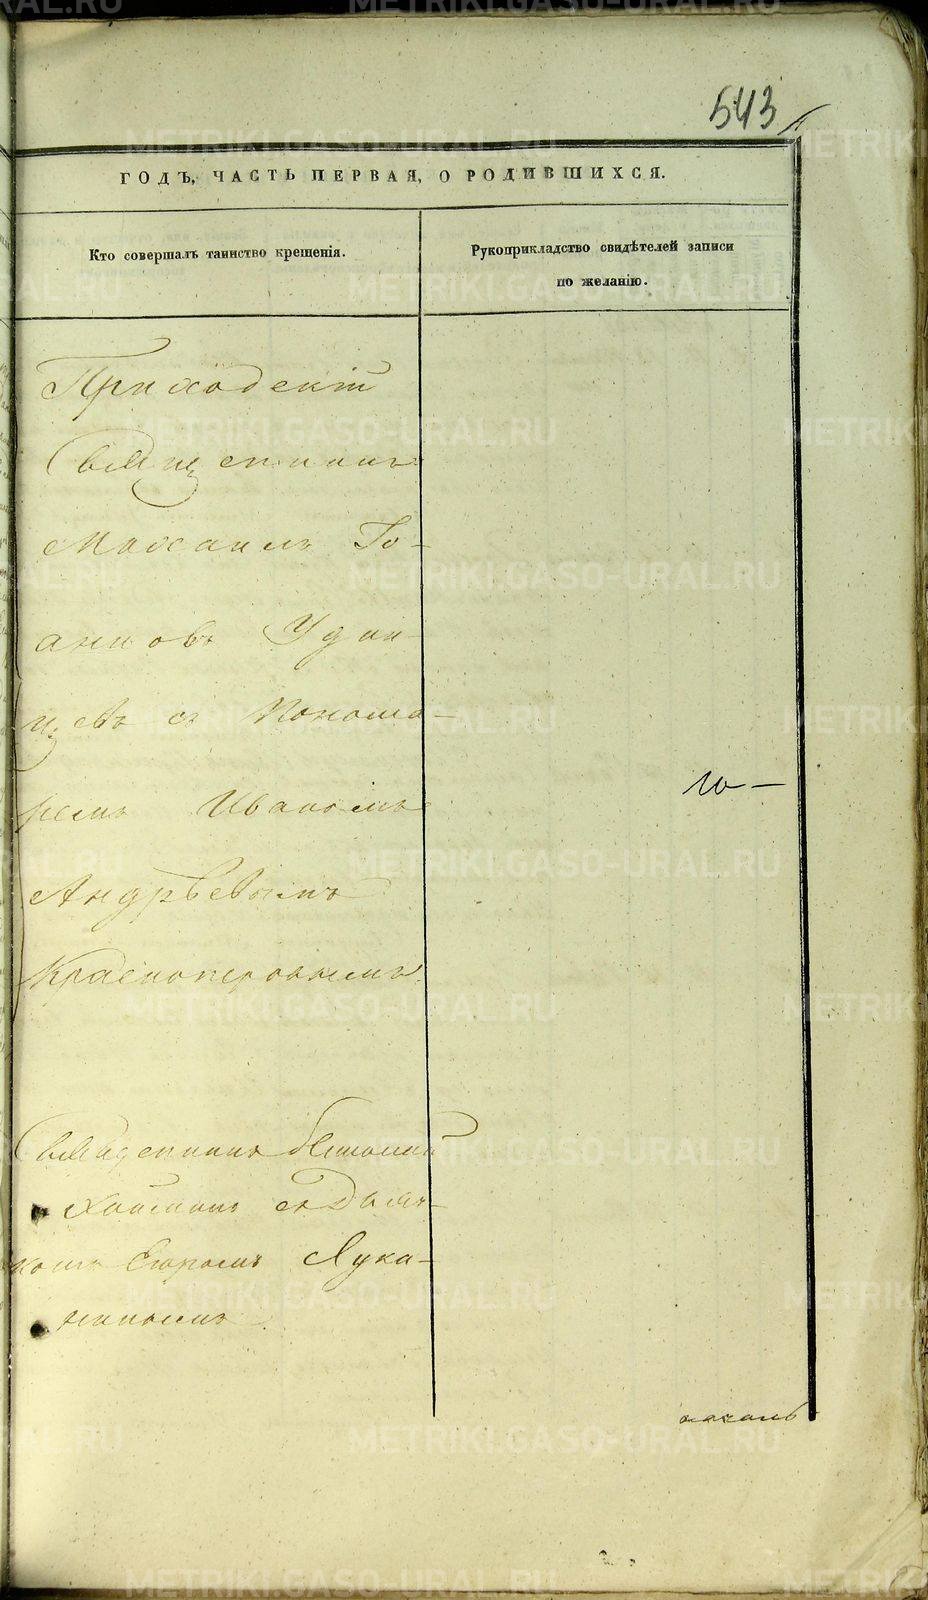 543
ГОДЪ, ЧАСТЬ ПЕРВАЯ, О РОДИВШИХСЯ.
Кто совершалъ таинство крещенія.
Рукоприкладство свидѣтелей записи
по желанію.
Приходскій
Священникъ
Михаилъ Іо-
анновъ Удин-
цевъ съ Понома-
ремъ Иваномъ
Андрѣевымъ
Красноперовымъ.
Священникъ
съ Дьяч-
комъ Егоромъ Лука-
нинымъ.
METRIKI.GASO-URAL.RU